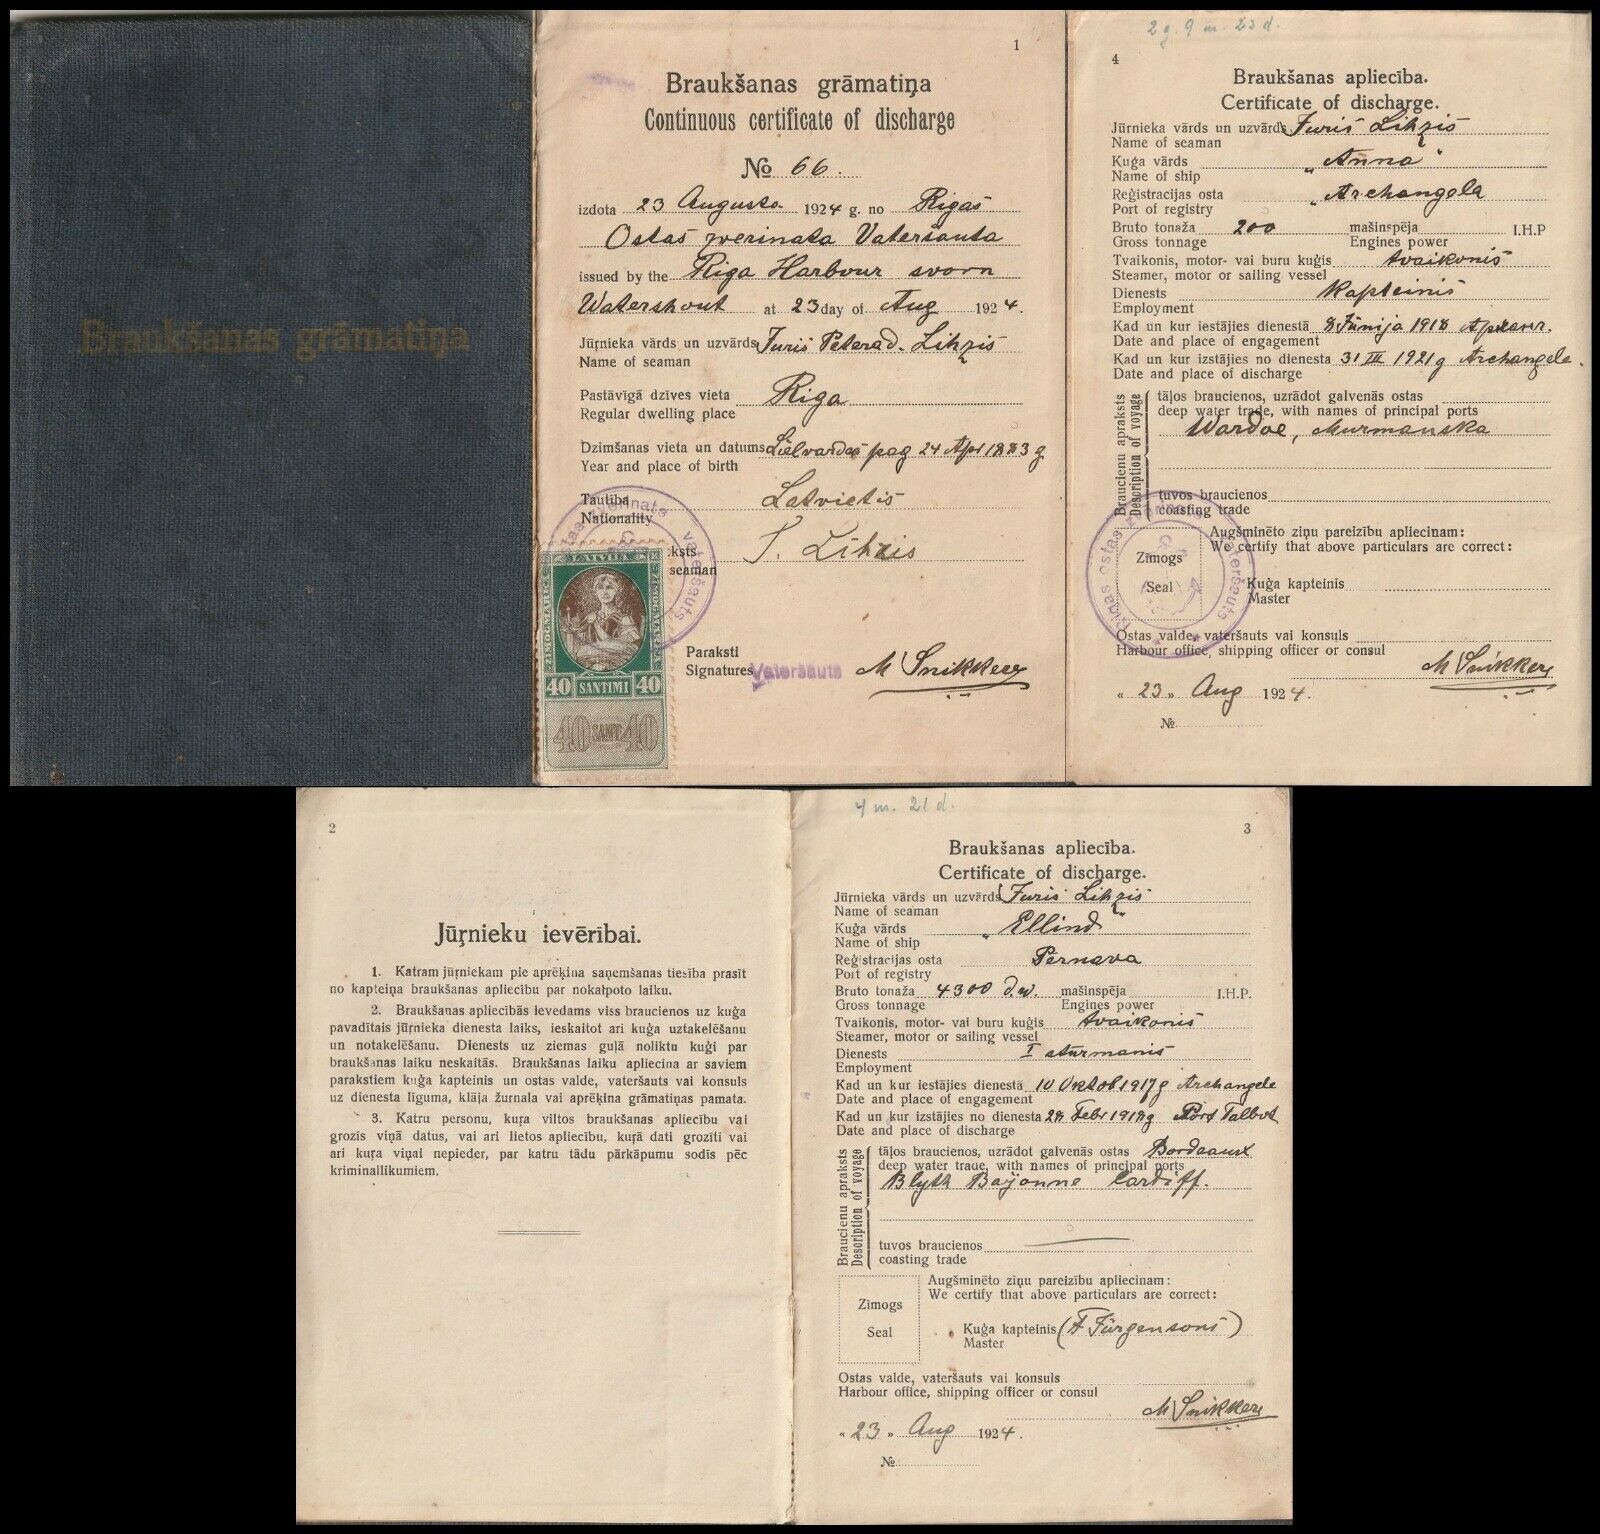 Braukšanas grāmatiņa
1
Braukšanas grāmatiņa
Continuous certificate of discharge
No 66.
izdota 23 Augusta 1924 g. no Rigas
Ostas zwerinata Vateršauta
issued by the Riga Harbour svorn
Watershout at 23 day of Aug 1924.
Jūŗnieka vārds un uzvārds Juris Peterad. Lihzis
Name of seaman
Pastāvīgā dzīves vieta Riga
Regular dwelling place
Dzimšanas vieta un datums Lielvardes pag 24 Apr 1883 g
Year and place of birth
Tautība Latvietis
Nationality
J. Lihzis
ksts
seaman
LATVIJA
40 SANTIMI 40
40 SANT 40
Paraksti
Signatures Vateršauts M Snikkers
2 g. 9 m. 23 d.
4
Braukšanas apliecība.
Certificate of discharge.
Jūrnieka vārds un uzvārds Juris Lihzis
Name of seaman
Kuģa vārds „Anna"
Name of ship
Reģistracijas osta „Archangela
Port of registry
Bruto tonaža 200 mašinspēja I.H.P
Gross tonnage Engines power
Tvaikonis, motor- vai buru kuģis tvaikonis
Steamer, motor or sailing vessel
Dienests Kapteinis
Employment
Kad un kur iestājies dienestā 8 Junija 1918
Date and place of engagement
Kad un kur izstājies no dienesta 31 III 1921 g Archangele.
Date and place of discharge
Braucienu apraksts
Description of voyage
tāļos braucienos, uzrādot galvenās ostas
deep water trade, with names of principal ports
Wardoe, Murmanska
tuvos braucienos
coasting trade
Rīgas ostas zvērināts vateršauts
Zīmogs
Seal
Augšminēto ziņu pareizību apliecinam:
We certify that above particulars are correct:
Kuģa kapteinis
Master
Ostas valde, vateršauts vai konsuls
Harbour office, shipping officer or consul
M Snikkers
„23„ Aug 1924.
№
2
Jūŗnieku ievērībai.
1. Katram jūŗniekam pie aprēķina saņemšanas tiesība prasīt
no kapteiņa braukšanas apliecību par nokalpoto laiku.
2. Braukšanas apliecībās ievedams viss braucienos uz kuģa
pavadītais jūŗnieka dienesta laiks, ieskaitot arī kuģa uztakelēšanu
un notakelēšanu. Dienests uz ziemas guļā noliktu kuģi par
braukšanas laiku neskaitās. Braukšanas laiku apliecina ar saviem
parakstiem kuģa kapteinis un ostas valde, vateršauts vai konsuls
uz dienesta līguma, klāja žurnala vai aprēķina grāmatiņas pamata.
3. Katru personu, kuŗa viltos braukšanas apliecību vai
grozīs viņā datus, vai arī lietos apliecību, kuŗā dati grozīti vai
arī kuŗa viņai nepieder, par katru tādu pārkāpumu sodīs pēc
kriminallikumiem.
4 m. 21 d.
3
Braukšanas apliecība.
Certificate of discharge.
Jūŗnieka vārds un uzvārds Juris Lihzis
Name of seaman
Kuģa vārds „Ellind"
Name of ship
Reģistracijas osta Pernava
Port of registry
Bruto tonaža 4300 d.w. mašinspēja I.H.P.
Gross tonnage Engines power
Tvaikonis, motor- vai buru kuģis tvaikonis
Steamer, motor or sailing vessel
Dienests I stūrmanis
Employment
Kad un kur iestājies dienestā 10 Oktob 1917 g Archangele
Date and place of engagement
Kad un kur izstājies no dienesta 28 Febr 1918 g Port Talbot
Date and place of discharge
Braucienu apraksts
Description of voyage
tāļos braucienos, uzrādot galvenās ostas Bordeaux
deep water trade, with names of principal ports
Blyth Bayonne Cardiff.
tuvos braucienos
coasting trade
Zīmogs
Seal
Augšminēto ziņu pareizību apliecinam:
We certify that above particulars are correct:
Kuģa kapteinis (F Jürgensons)
Master
Ostas valde, vateršauts vai konsuls
Harbour office, shipping officer or consul
M Snikkers
„23„ Aug 1924.
№